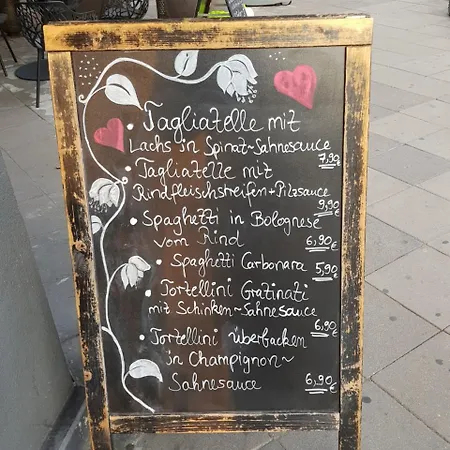 • Tagliatelle mit
Lachs in Spinat~Sahnesauce
7,90
• Tagliatelle mit
Rindfleischstreifen+Pilzsauce
9,90 €
• Spaghetti in Bolognese
vom Rind 6,90 €
• Spaghetti Carbonara 5,90 €
• Tortellini Gratinati
mit Schinken~Sahnesauce
6,90 €
• Tortellini überbacken
in Champignon~
Sahnesauce 6,90 €